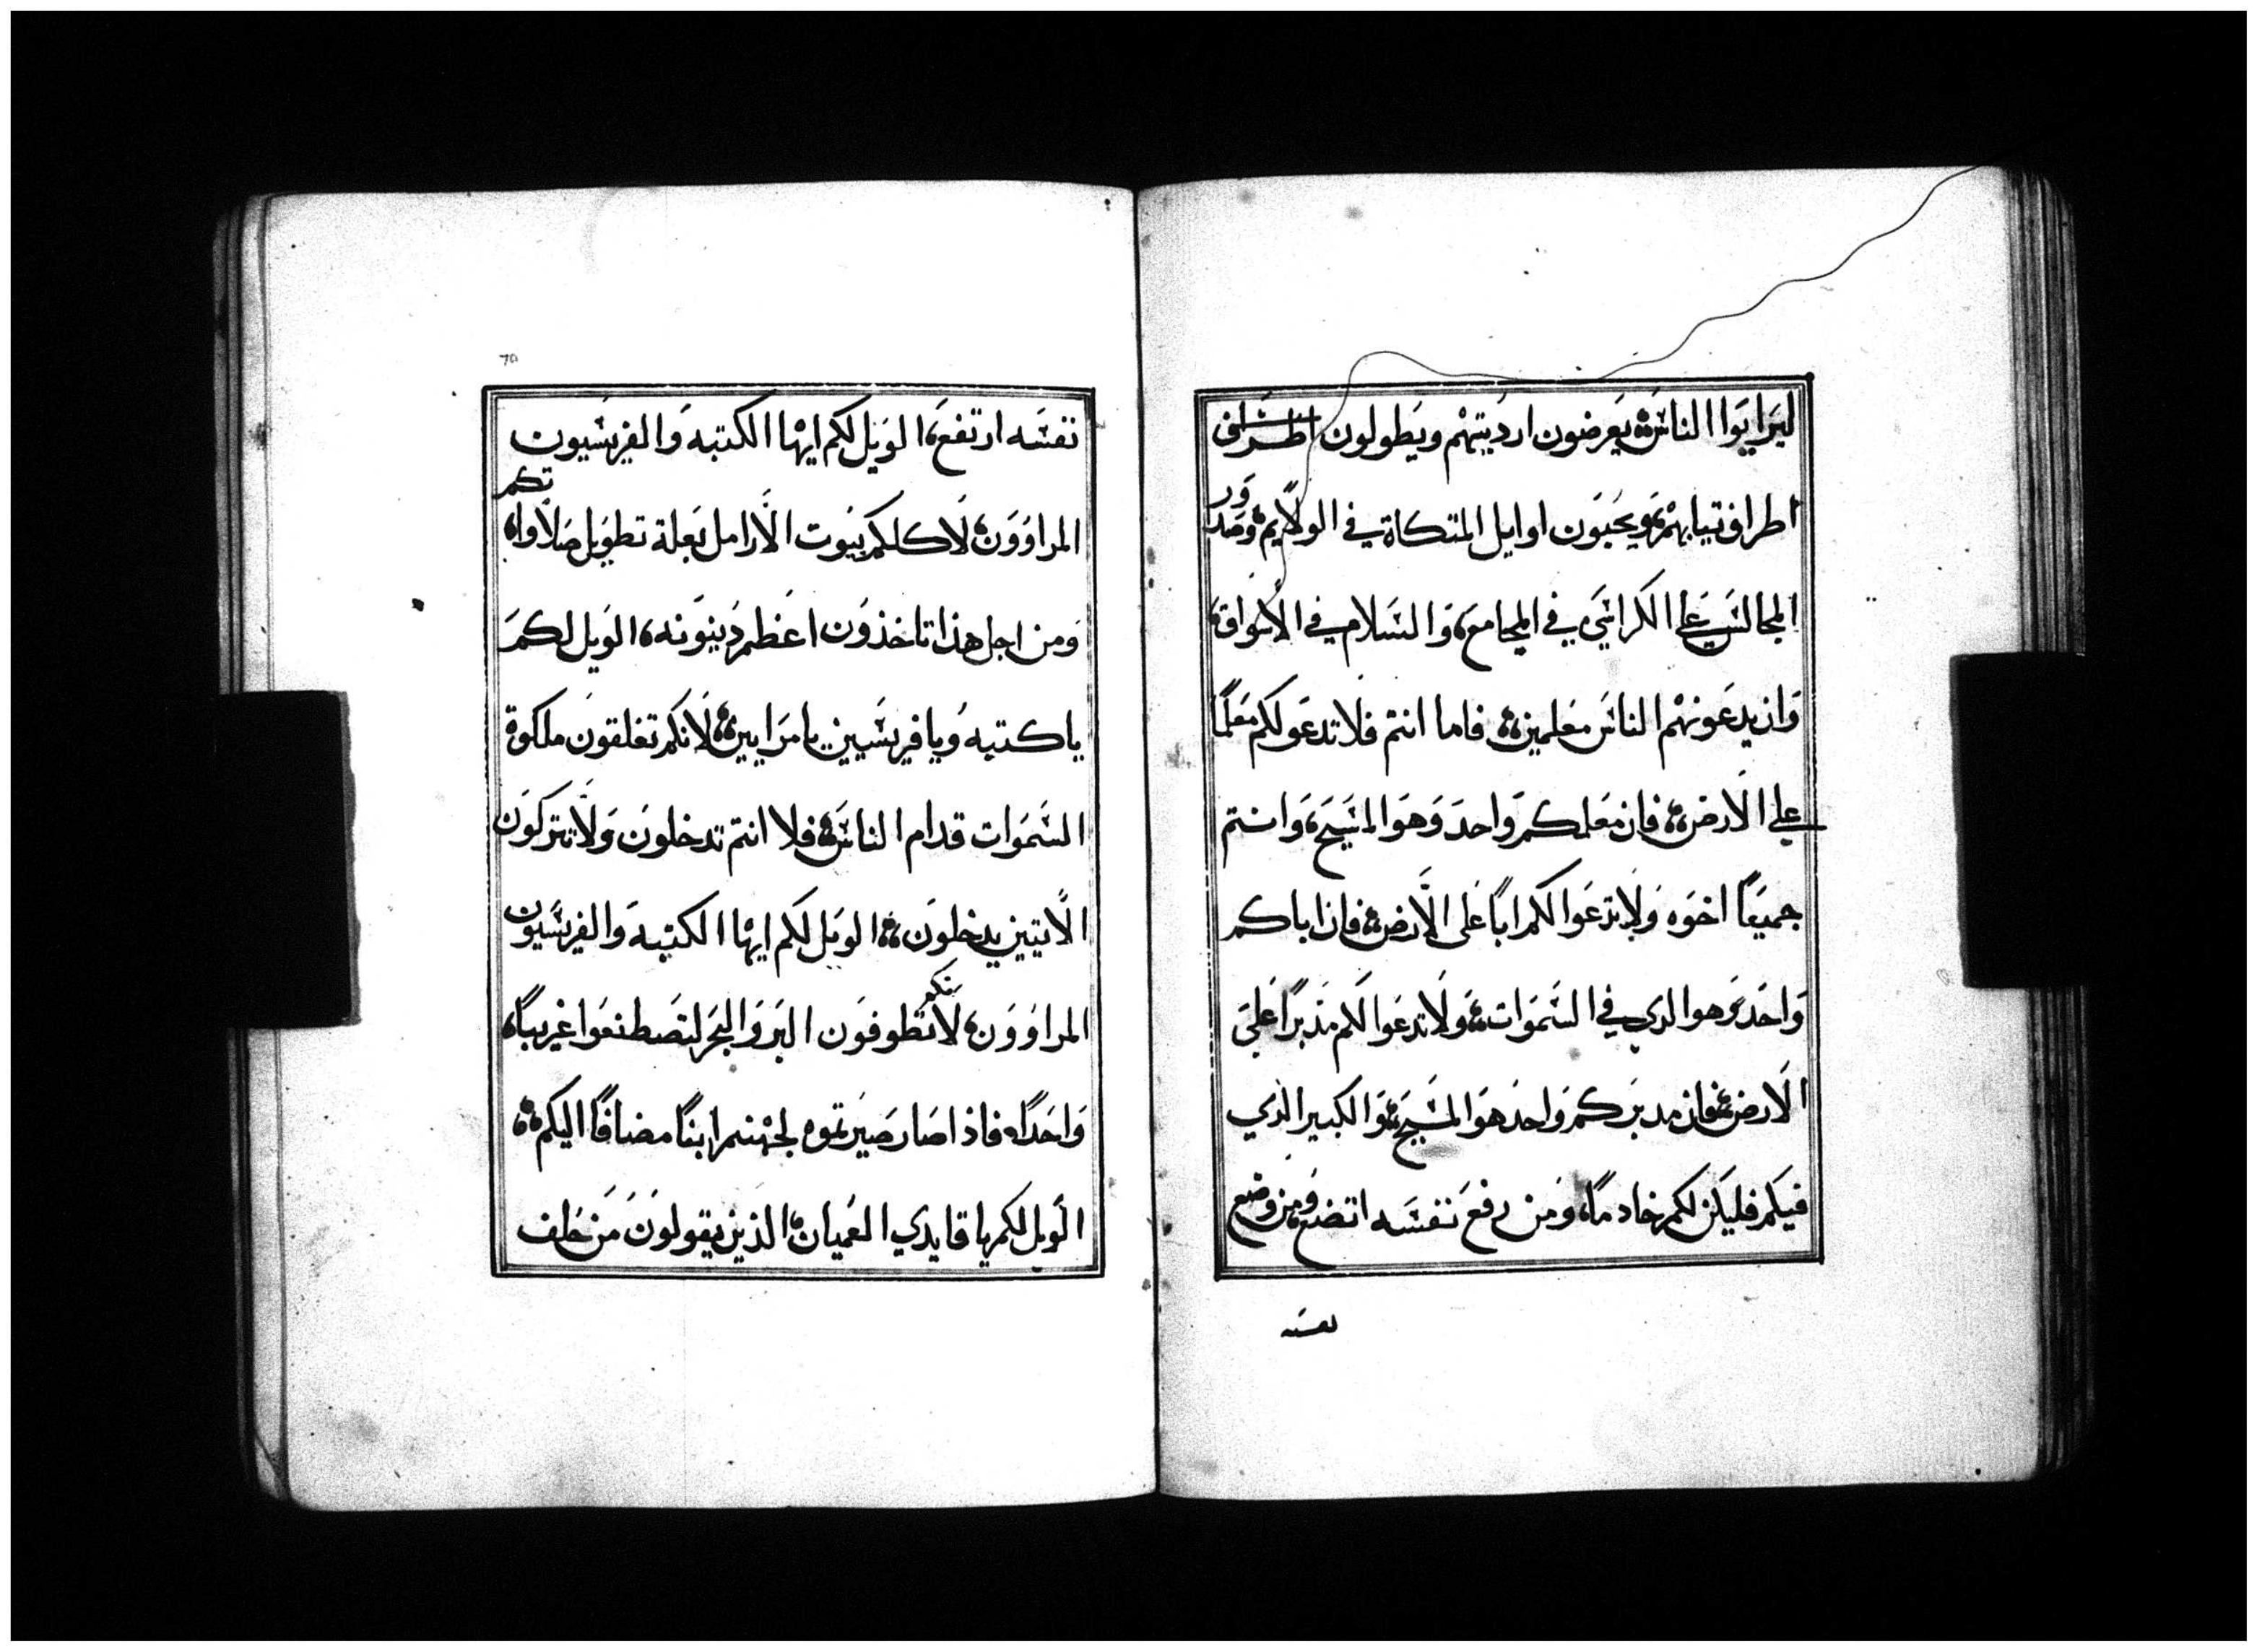 ليرايوا الناس يعرضون ارديتهم ويطولون اطراف
اطراف تيابهم ويحبون اوايل المتكاة في الولايم وصدور
المجالس علي الكراسي في المجامع، والسلام في الاسواق،
وان يدعونهم الناس معلمين، فاما انتم فلا تدعو لكم معلمًا
علي الارض، فان معلمكم واحد وهو المسيح، وانتم
جميعًا اخوه ولا تدعوا لكم ابًا على الارض، فان اباكم
واحد وهو الدي في السموات، ولا تدعوا لكم مدبرًا علي
الارض، فان مدبركم واحد هو المسيح، والكبير الذي
فيكم فليكن لكم خادمًا، ومن رفع نفسه اتضع، ومن وضع
نفسه
٦٥
نفسه ارتفع، الويل لكم ايها الكتبه والفريسيون
المراوون، لاكلكم بيوت الارامل بعلة تطويل صلاواتكم،
ومن اجل هذا تاخذون اعظم دينونه، الويل لكم
ياكتبه ويافريسيين يامرايين، لانكم تغلقون ملكوة
السموات قدام الناس، فلا انتم تدخلون ولا تتركون
الاتيين يدخلون، الويل لكم ايها الكتبه والفريسيون
المراوون، لانكم تطوفون البر والبحر لتصطنعوا غريبًا،
واحدًا، فاذا صار صيرتموه لجهنم ابنًا مضافًا اليكم،
الويل لكم ياقايدي العميان، الذين يقولون من حلف